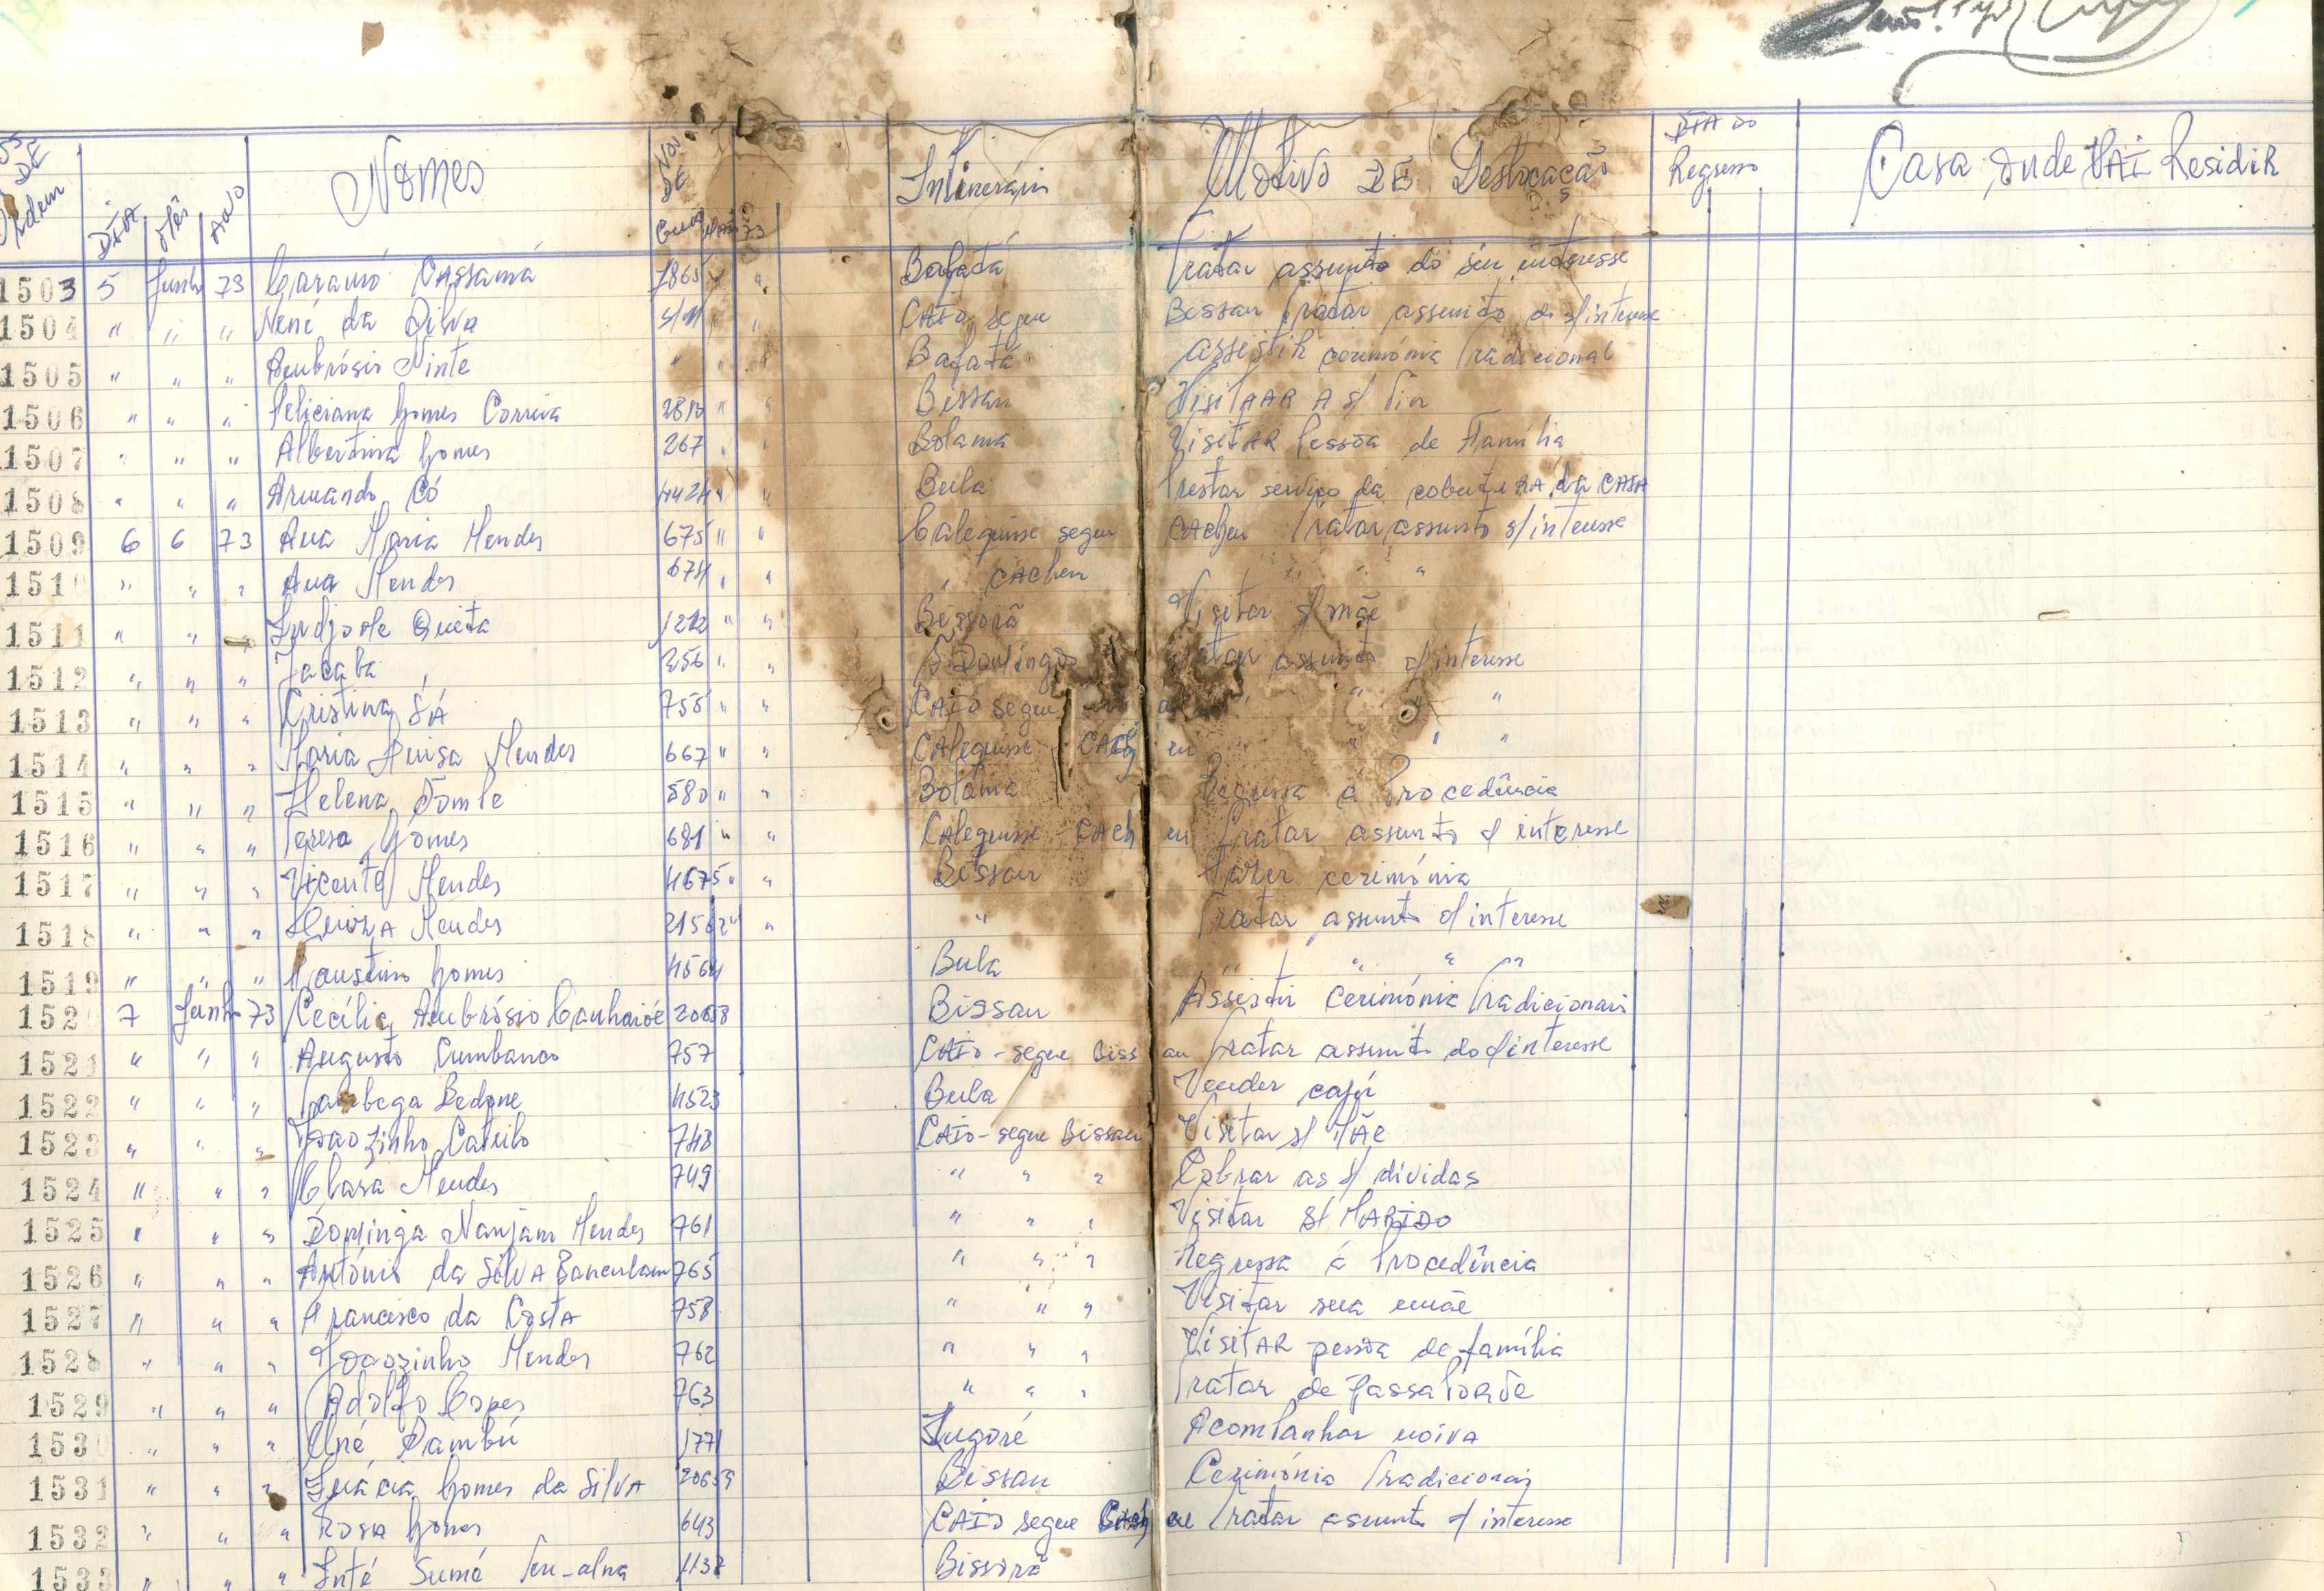 Nos DE Ordem DIA Mês ANO Nomes Nos DE Guia Intinerário Motivo DE Deslocação DIA DO Regresso Casa onde VAI Residir
1503 5 Junho 73 Caramó Cassamá 1865 " " Bafatá Tratar assunto do seu interesse
1504 " " " Nené da Silva " " CAIO segue Bissau Tratar assunto do s/interesse
1505 " " " Ambrósio Ninte " " " Bafatá Assistir cerimónia Tradicional
1506 " " " Feliciana Gomes Correia " " Bissau VisitAAR A s/ Tia
1507 " " " Albertina Gomes 267 " " Bolama VisitAR Pessoa de Família
1508 " " " Armando Có 4424 " " Bula Prestar serviço da cobertuRA da CASA
1509 6 6 73 Ana Maria Mendes 675 " " Calequisse segue CACheu Tratar assunto s/interesse
1510 " " " Ana Mendes 674 " " " CACheu " " "
1511 " " " Queta 1212 " " Bissorã Visitar s/ mãe
1512 " " " Jacaba 256 " " S. Domingos Tratar assunto s/interesse
1513 " " " Cristina SÁ 755 " " CAIO segue " " "
1514 " " " Maria Luisa Mendes 667 " " CAlequisse CACheu " " "
1515 " " " Helena Tomle 580 " " Bolama Regressa á Procedência
1516 " " " Teresa Gomes 681 " " CAlequisse - CACheu Tratar assunto s/ interesse
1517 " " " Vicente Mendes 4675 " " Bissau Fazer cerimónia
1518 " " " Mendes 21562 " " " Tratar assunto s/interesse
1519 " " " Faustino Gomes 4564 Bula " " " "
152 7 Junho 73 Cecília Ambrósio Canhoió 20658 Bissau Assistir Cerimónia Tradicionais
1521 " " " Augusto Cumbanco 757 CAIO - segue Bissau Tratar assunto do s/interesse
1522 " " " Bedone 4523 Bula Vender cajú
1523 " " " Joaozinho Catulo 748 CAIO - segue Bissau Visitar s/ MÃe
1524 " " " Clara Mendes 749 " " " Cobrar as s/ dívidas
1525 " " " Dominga Nanjam Mendes 761 " " " Visitar S/ MARIDO
1526 " " " António da SilVA Banculam 765 " " " Regressa á Procedência
1527 " " " Francisco da CostA 758 " " " Visitar sua mãe
1528 " " " Joaozinho Mendes 762 " " " VisitAR pessoa de família
1529 " " " Adolfo Lopes 763 " " " Tratar de PassaPorte
153 " " " Uné Dambú 1771 Ingoré AcomPanhar noivA
1531 " " " Inácia Gomes da SilvA 20659 Bissau Cerimónia Tradicionais
1532 " " " Rosa Gomes 643 CAIO segue Cacheu Tratar assunto s/ interesse
1533 " " " Inté Sumé 1137 Bissorã